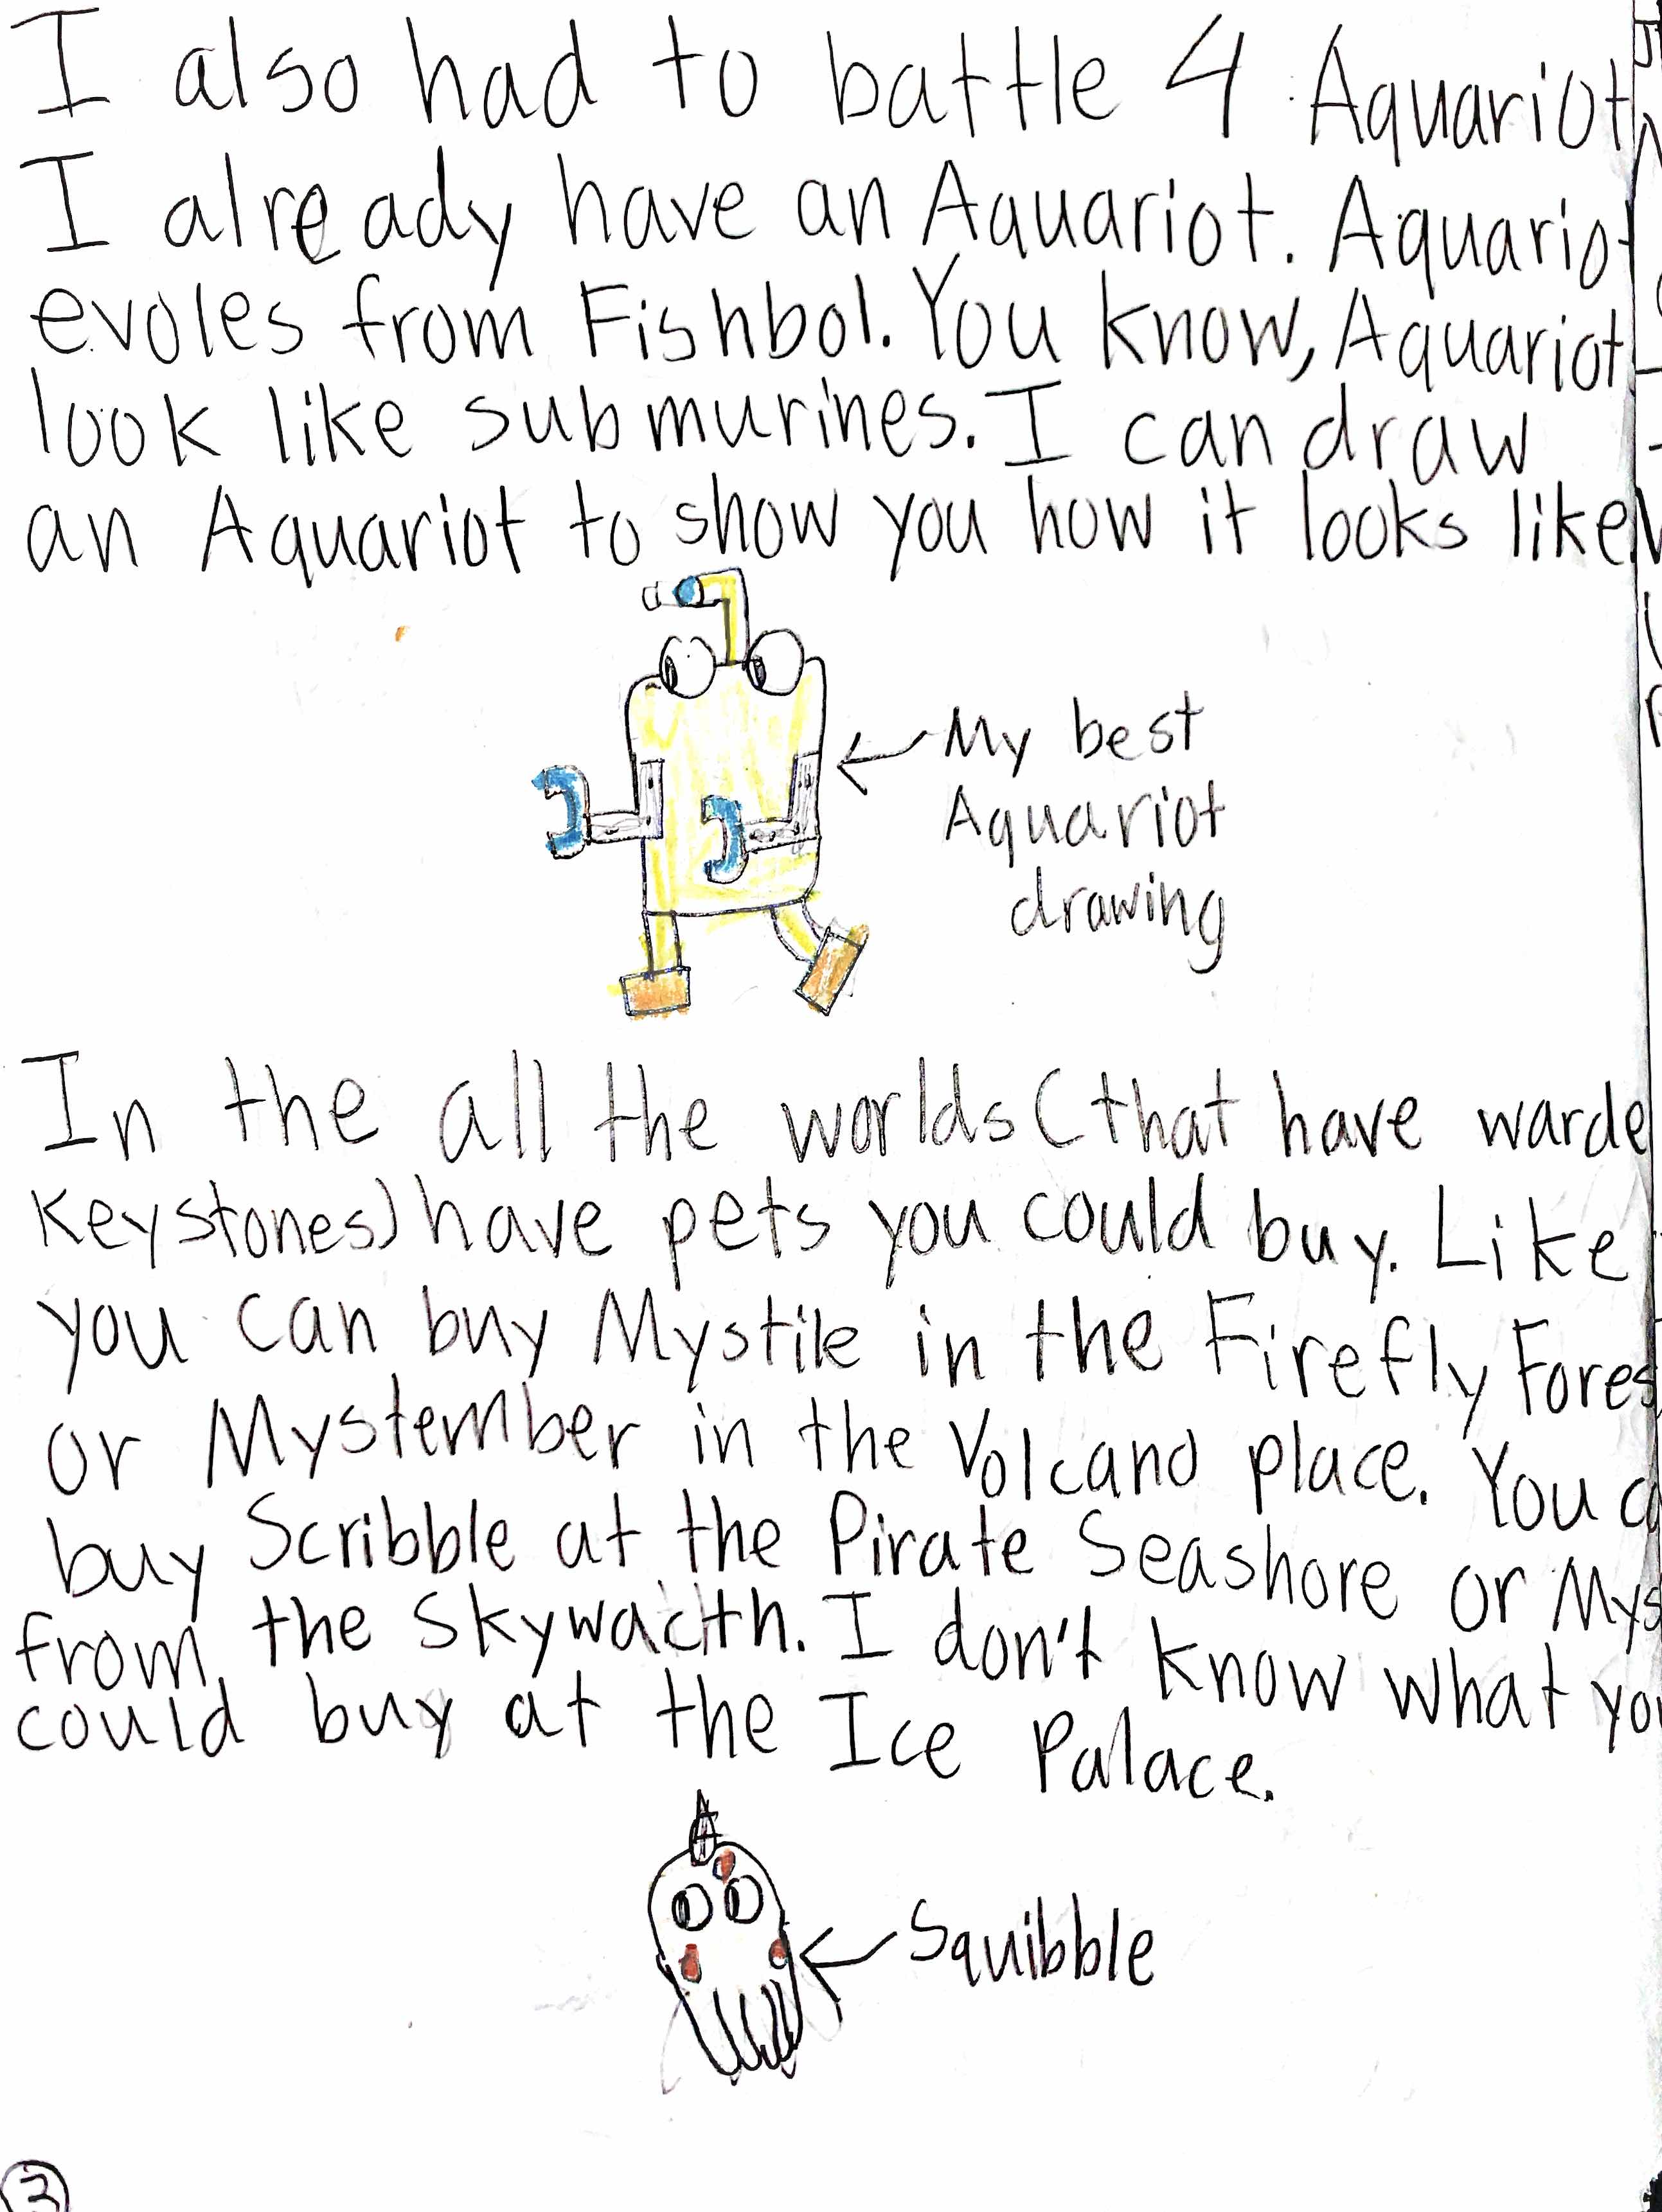 I also had to battle 4 Aquariot
I already have an Aquariot. Aquariot
evoles from Fishbol. You know, Aquariot
look like submurines. I can draw
an Aquariot to show you how it looks like.
My best
Aquariot
drawing
In the all the worlds (that have warde
keystones) have pets you could buy. Like
you can buy Mystile in the Firefly Fores
or Mystember in the Volcano place. You
buy Scribble at the Pirate Seashore or Mys
from the Skywacth. I don't know what you
could buy at the Ice Palace.
Squibble
3